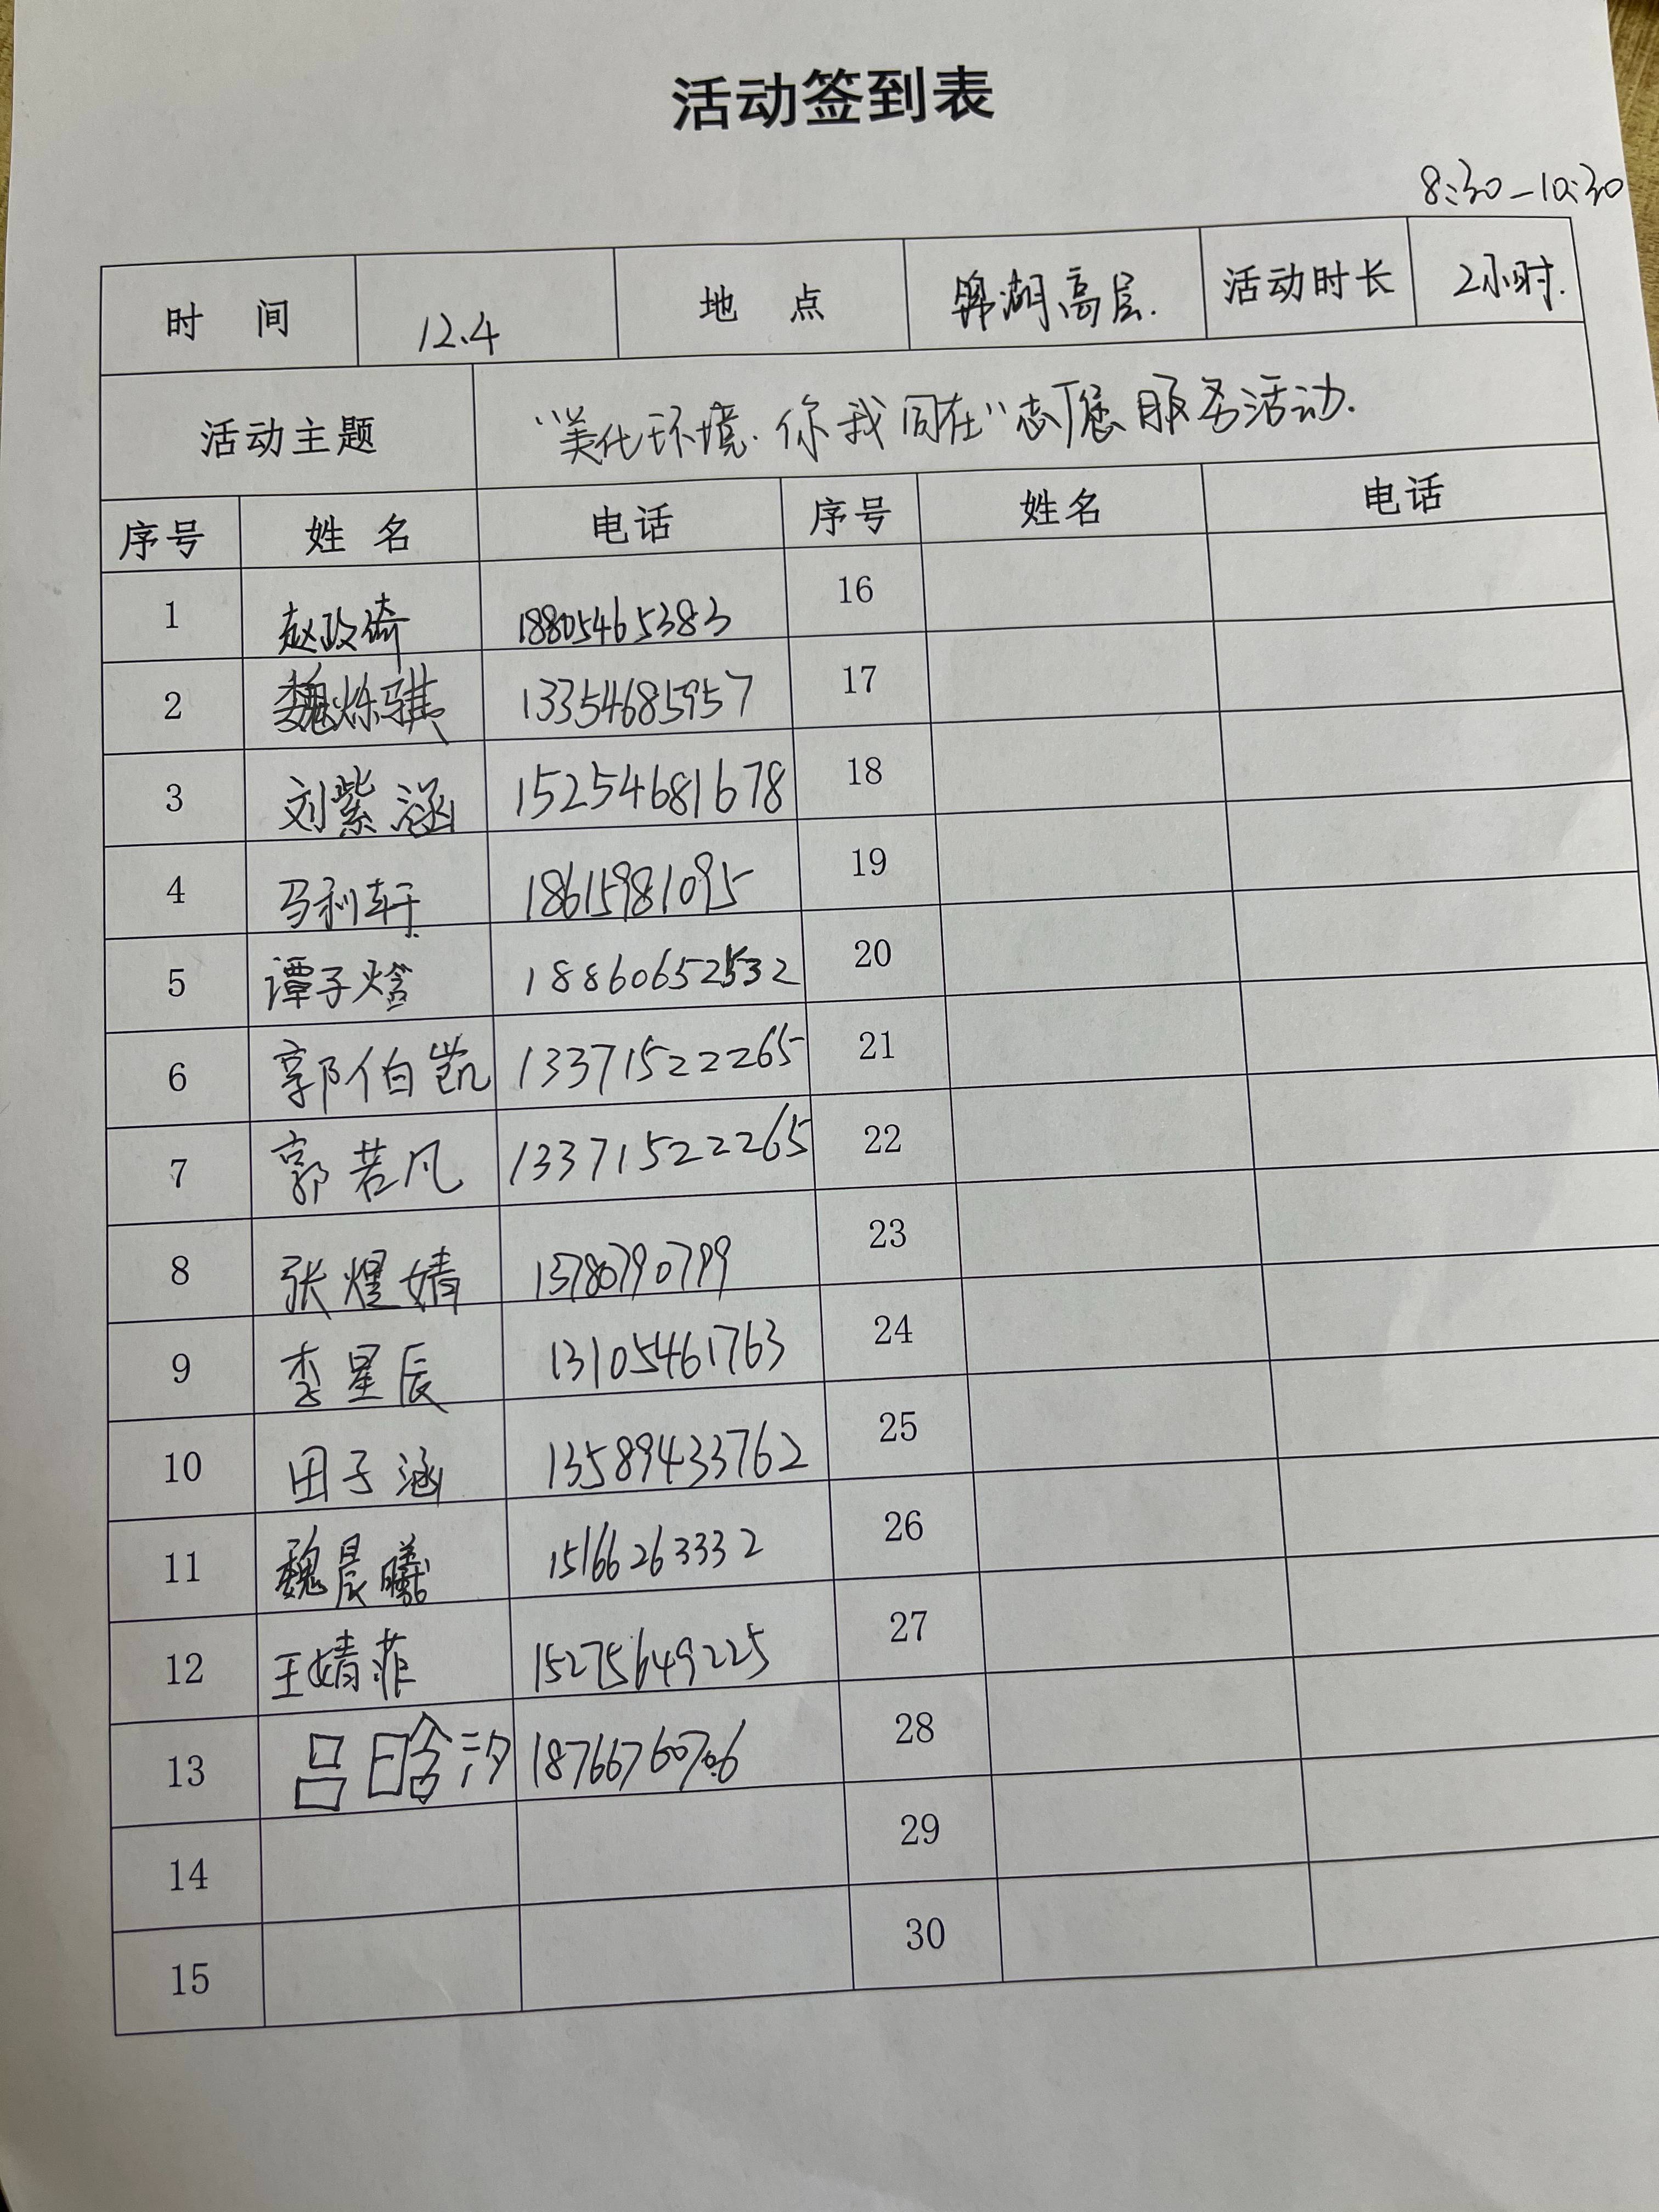 活动签到表
8:30-10:30
时 间 12.4 地 点 锦湖高层. 活动时长 2小时.
活动主题 "美化环境.你我同在"志愿服务活动.
序号 姓 名 电话 序号 姓名 电话
1 赵政倚 18805465383 16
2 魏烁骐 13354685957 17
3 刘紫涵 15254681678 18
4 马利轩 18615981095 19
5 谭子焓 18860652532 20
6 郭伯凯 13371522265 21
7 郭若凡 13371522265 22
8 张煜婧 13780790799 23
9 李星辰 13105461763 24
10 田子涵 13589433762 25
11 魏晨曦 15166263332 26
12 王婧菲 15275649225 27
13 吕晗汐 18766760706 28
14 29
15 30